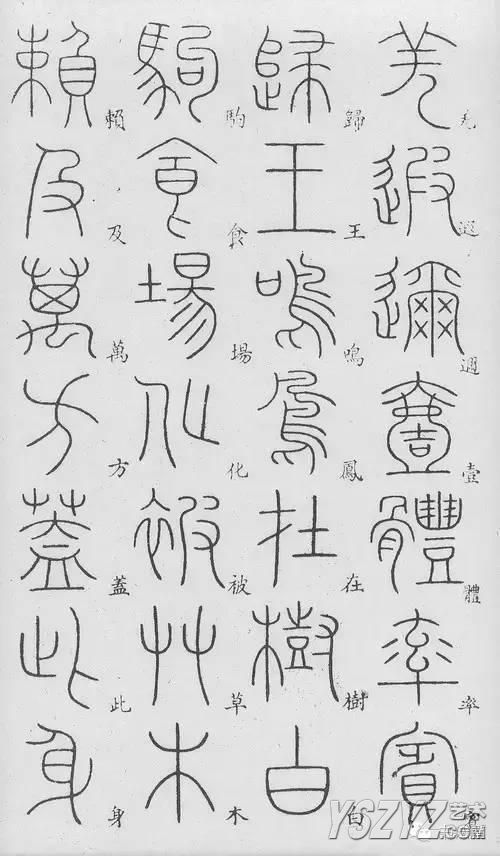 羌遐邇壹體率賓
歸王鳴鳳在樹白
駒食場化被草木
賴及萬方蓋此身
YSZYZ艺术